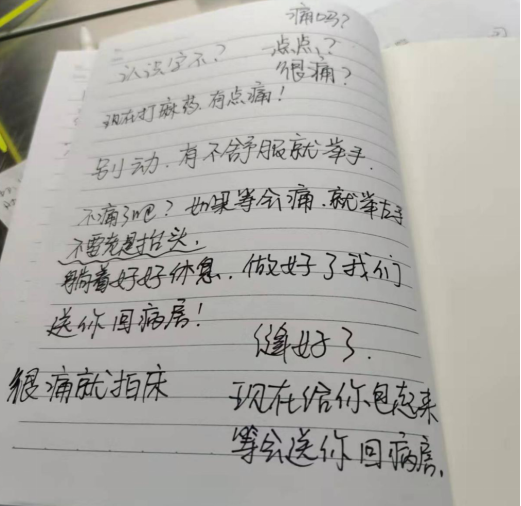 痛吗？
一点点？
很痛？
认识字不？
现在打麻药.有点痛！
别动.有不舒服就举手.
不痛了吧？如果等会痛.就举左手
不要老是抬头.
躺着好好休息.做好了我们
送你回病房！
缝好了.
很痛就拍床
现在给你包起来
等会送你回病房.